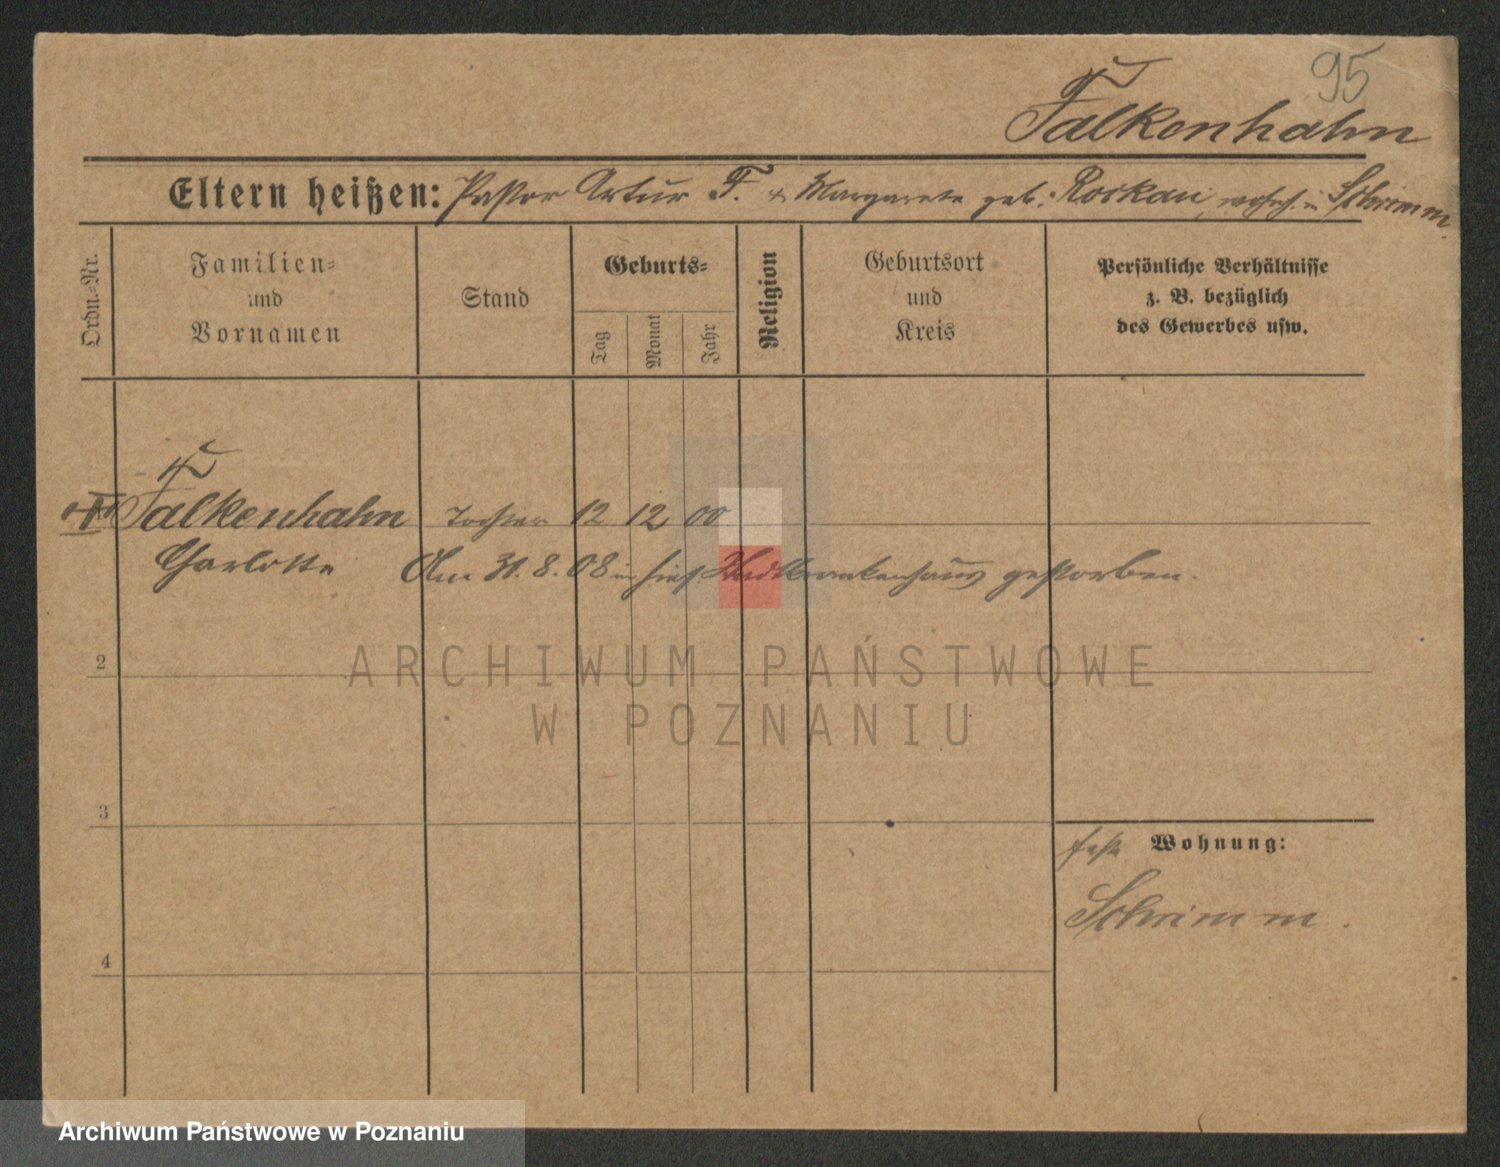 95
Falkenhahn
Eltern heißen: Pastor Artur F. & Margarete geb. Roskau, wohnh. in Schrimm.
Ordn.-Nr.
Familien-
und
Vornamen
Stand
Geburts-
Tag
Monat
Jahr
Religion
Geburtsort
und
Kreis
Persönliche Verhältnisse
z. B. bezüglich
des Gewerbes usw.
Falkenhahn Tochter 12 12 00
Charlotte Am 31.8.08 im hies. Stadtkrankenhaus gestorben.
2
ARCHIWUM PAŃSTWOWE
W POZNANIU
3
feste Wohnung:
Schrimm.
4
Archiwum Państwowe w Poznaniu